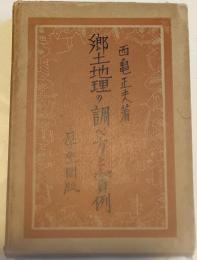 西亀正夫著
郷土地理の調べ方と實例